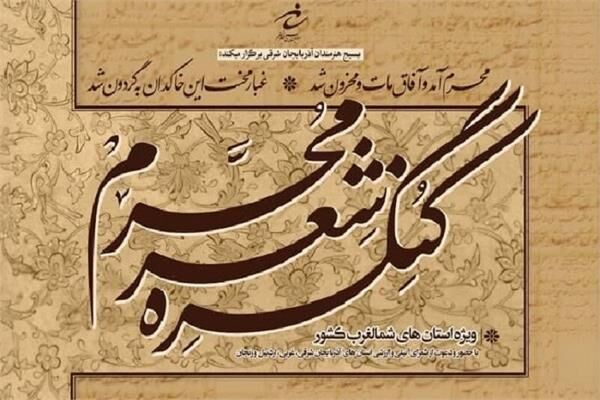 بسیج هنرمندان آذربایجان شرقی برگزار میکند:
محرم آمد و آفاق مات و محزون شد * غبار محنت این خاکدان به گردون شد
کنگره شعر محرم
* ویژه استان های شمالغرب کشور
با حضور و دعوت از شعرای آیینی و ارزشی استان های آذربایجان شرقی، غربی، اردبیل و زنجان